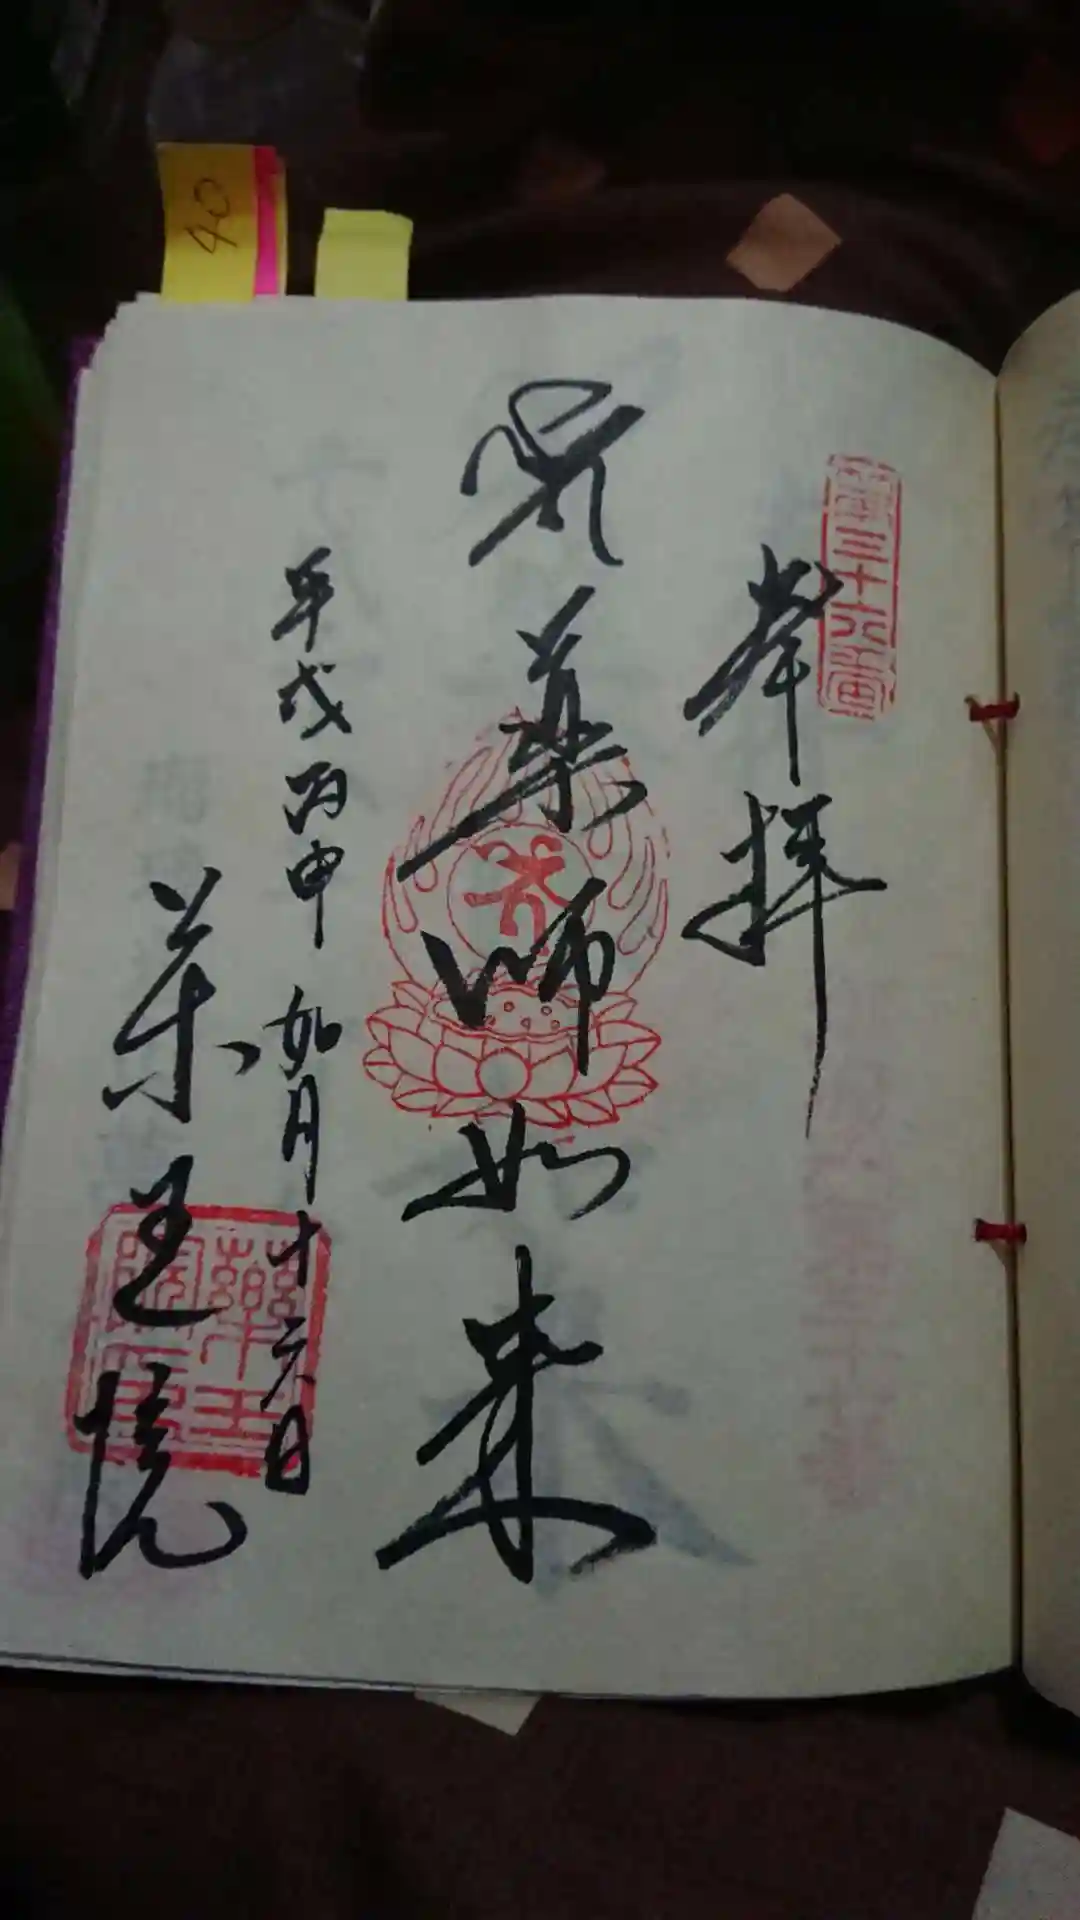 40
第三十六番
奉拝
薬師如来
平成丙申 如月十六日
薬王院
藥王院印